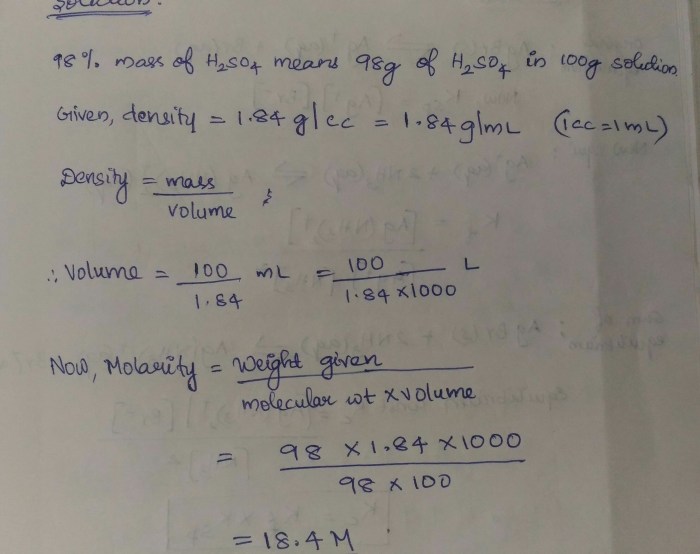 Solution:
98% mass of H₂SO₄ means 98g of H₂SO₄ in 100g solution
Given, density = 1.84 g/cc = 1.84 g/mL (1cc=1mL)
Density = mass
volume ;
∴ Volume = 100 mL = 100 L
1.84 1.84×1000
Now, Molarity = Weight given
molecular wt × volume
= 98 × 1.84 ×1000
98 × 100
= 18.4 M